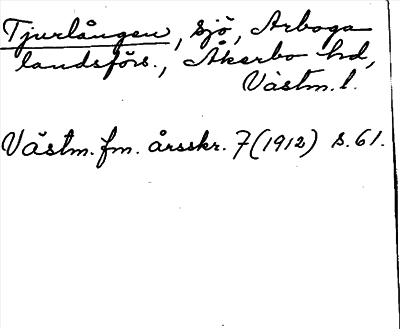 Tjurlången, sjö, Arboga
landsförs., Åkerbo hd,
Västm. l.
Västm. fm. årsskr. 7 (1912) s. 61.